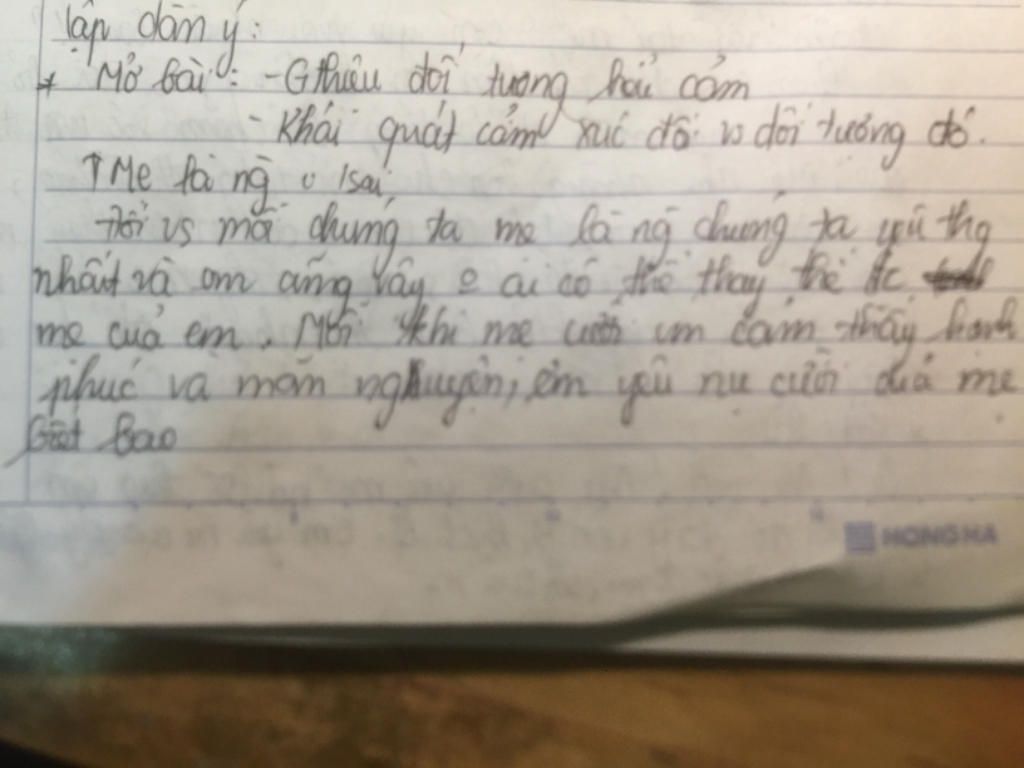 lập dàn ý:
* Mở bài: - Gthiệu đối tượng biểu cảm
- Khái quát cảm xúc đối vs đối tượng đó.
Mẹ là ng
Đối vs mỗi chúng ta mẹ là ng chúng ta yêu thg
nhất và em cũng vậy ai có thể thay thế đc
mẹ của em. Mỗi khi mẹ cười em cảm thấy hạnh
phúc và mãn nguyện, em yêu nụ cười của mẹ
biết bao
HONG HA